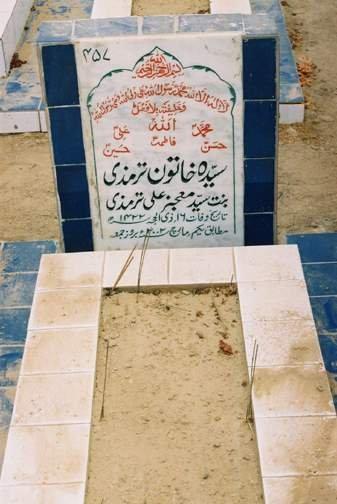 ۴۵۷
بسم اللہ الرحمن الرحیم
لا الہ الا اللہ محمد رسول اللہ علی ولی اللہ وصی رسول اللہ
وخلیفتہ بلا فصل
محمدؐ اللہ علیؑ
حسنؑ فاطمہؑ حسینؑ
سیدہ خاتون ترمذی
بنت سید معجز علی ترمذی
تاریخ وفات ۱۶ ذی الحجہ ۱۴۲۲ھ
مطابق یکم مارچ ۲۰۰۲ء بروز جمعہ